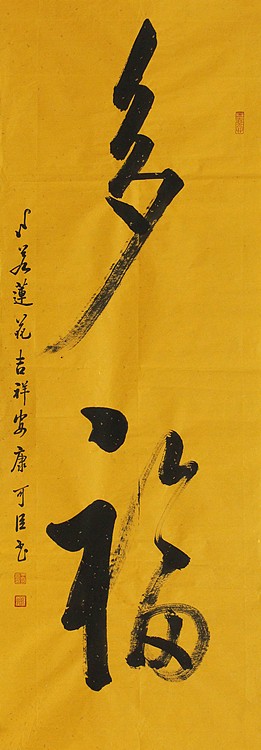 多福
心若蓮花吉祥安康可臣书